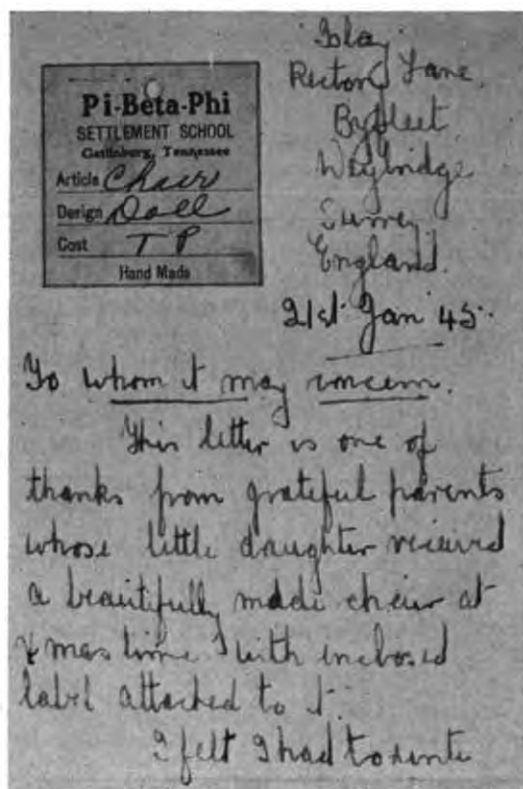 Pi-Beta-Phi
SETTLEMENT SCHOOL
Gatlinburg, Tennessee
Article Chair
Design Doll
Cost T P
Hand Made
Islay
Rectory Lane.
Byfleet.
Weybridge
Surrey.
England.
21st Jan 45.
To whom it may concern.
This letter is one of
thanks from grateful parents
whose little daughter received
a beautifully made chair at
Xmas time with enclosed
label attached to it.
I felt I had to write